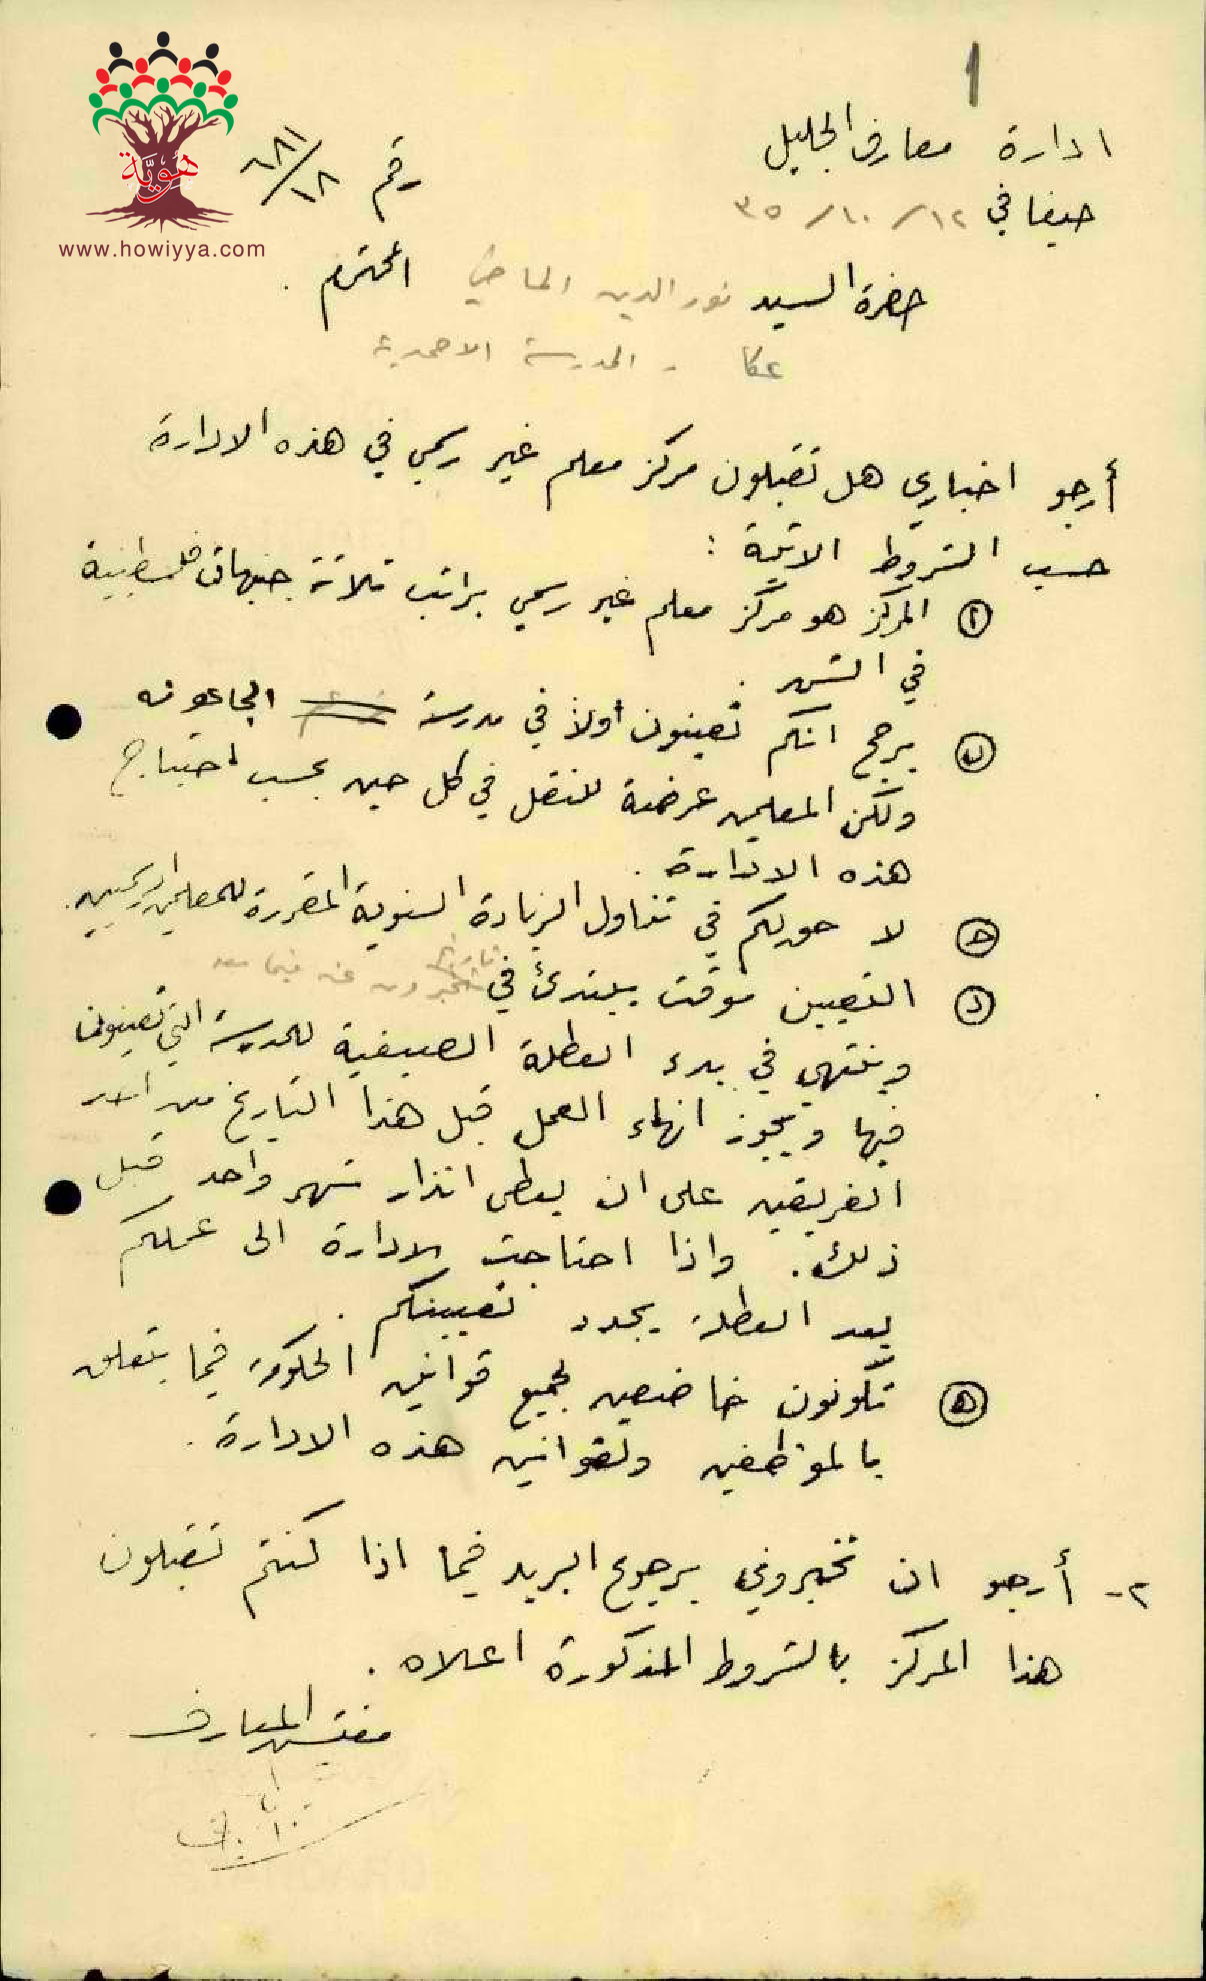 هُويَّة
www.howiyya.com
١
ادارة معارف الجليل
رقم ٦٨١/١٨
حيفا في ١٢/١٠/٣٥
حضرة السيد نور الدين الماضي المحترم .
عكا - المدرسة الاحمدية
أرجو اخباري هل تقبلون مركز معلم غير رسمي في هذه الادارة
حسب الشروط الاتية :
(أ) المركز هو مركز معلم غير رسمي براتب ثلاثة جنيهات فلسطينية
في الشهر .
(ب) يرجح انكم تعينون اولاً في مدرسة الجاعونه
ولكن المعلمين عرضة للنقل في كل حين بحسب احتياج
هذه الادارة .
(ج) لا حق لكم في تناول الزيادة السنوية المقررة للمعلمين الرسميين .
(د) التعيين موقت يبتدئ في تاريخ تخبرون عنه فيما بعد
وينتهي في بدء العطلة الصيفية للمدرسة التي تعينونها
فيها ويجوز انهاء العمل قبل هذا التاريخ من احد
الفريقين على ان يعطى انذار شهر واحد قبل
ذلك . واذا احتاجت الادارة الى عملكم
بعد العطلة يجدد تعيينكم .
(هـ) تكونون خاضعين لجميع قوانين الحكومة فيما يتعلق
بالموظفين ولقوانين هذه الادارة .
٢- أرجو ان تخبروني برجوع البريد فيما اذا كنتم تقبلون
هذا المركز بالشروط المذكورة اعلاه .
مفتش المعارف